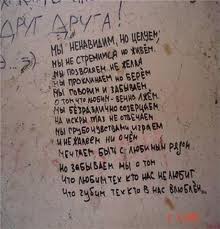 ДРУГ ДРУГА!
МЫ НЕНАВИДИМ, НО ЦЕЛУЕМ,
МЫ НЕ СТРЕМИМСЯ НО ЖИВЁМ.
МЫ ПОЗВОЛЯЕМ НЕ ЖЕЛАЯ
МЫ ПРОКЛИНАЕМ НО БЕРЁМ
МЫ ГОВОРИМ И ЗАБЫВАЕМ
О ТОМ ЧТО ЛЮБИМ - ВЕЧНО ЛЖЁМ.
МЫ БЕЗРАЗЛИЧНО СОЗЕРЦАЕМ,
НА ИСКРЫ ГЛАЗ НЕ ОТВЕЧАЕМ
МЫ ГРУБО ЧУВСТВАМИ ИГРАЕМ
И НЕ ЖАЛЕЕМ НИ О ЧЁМ
МЕЧТАЕМ БЫТЬ С ЛЮБИМЫМ РЯДОМ
НО ЗАБЫВАЕМ МЫ О ТОМ
ЧТО ЛЮБИМ ТЕХ КТО НАС НЕ ЛЮБИТ
ЧТО ГУБИМ ТЕХ КТО В НАС ВЛЮБЛЁН...